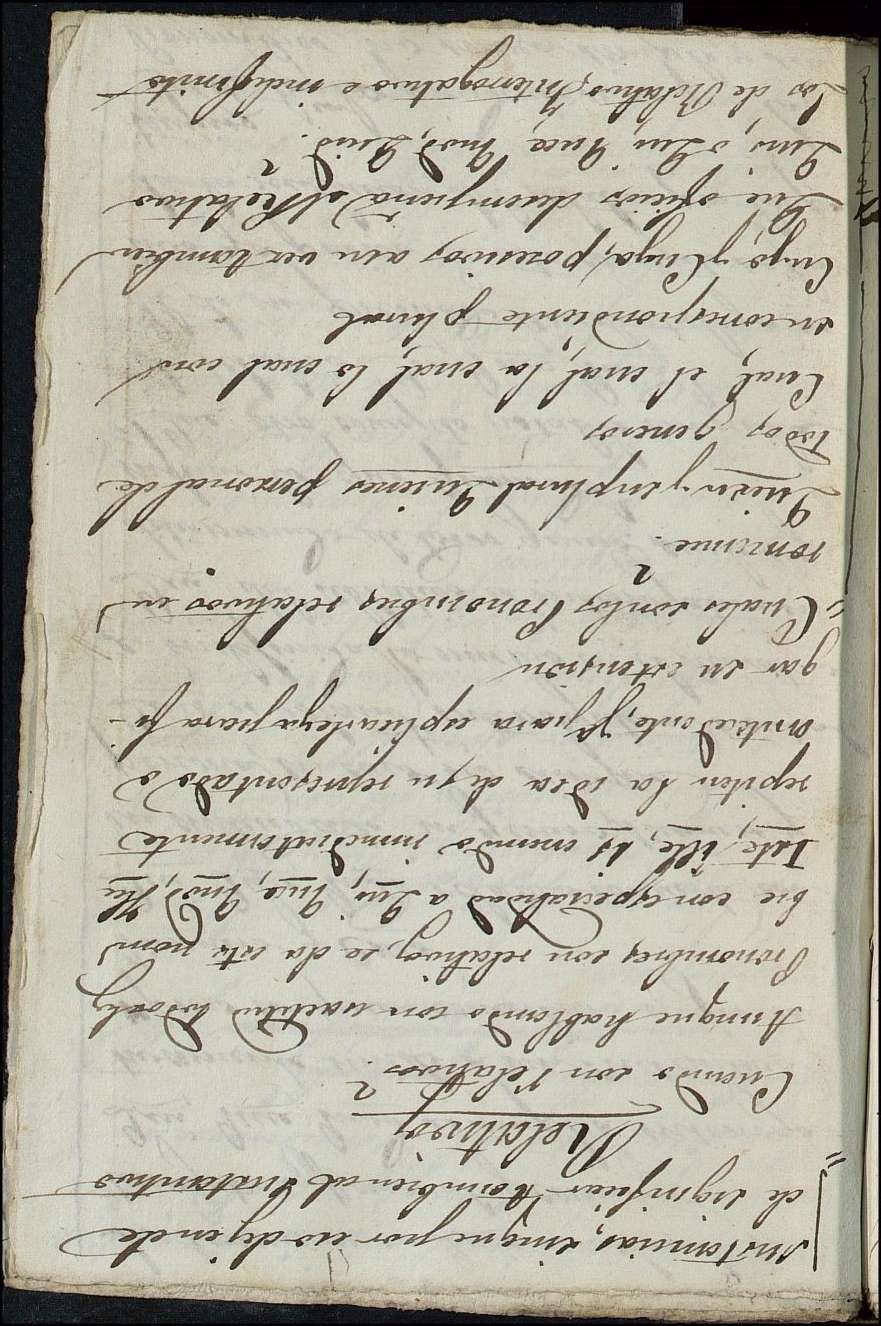 sustancias, sinque por eso dejende
de significar tambien al sustantivo
Relativos
Cuando son relativos?
Aunque hablando con exactitud todos los
Pronombres son relativos, se da este nom
bre con especialidad a Qui, Quae, Quod, Hic
Iste, ille, is cuando inmediatamente
repiten la idea de su representado ó
antecedente, yª para esplicarle yª para fi-
jar su estension
Cuales son los Pronombres relativos en
romance?
Quien y en plural Quienes personal de
todos generos
Cual, el cual, la cual, lo cual con
su correspondiente plural
Cuyo, y Cuya, posesivos, a su vez tambien
Que oficios desempeña el Relativo
Quis, ó Qui Quae Quod, Quid?
Los de Relativo, Interrogativo e indefinito